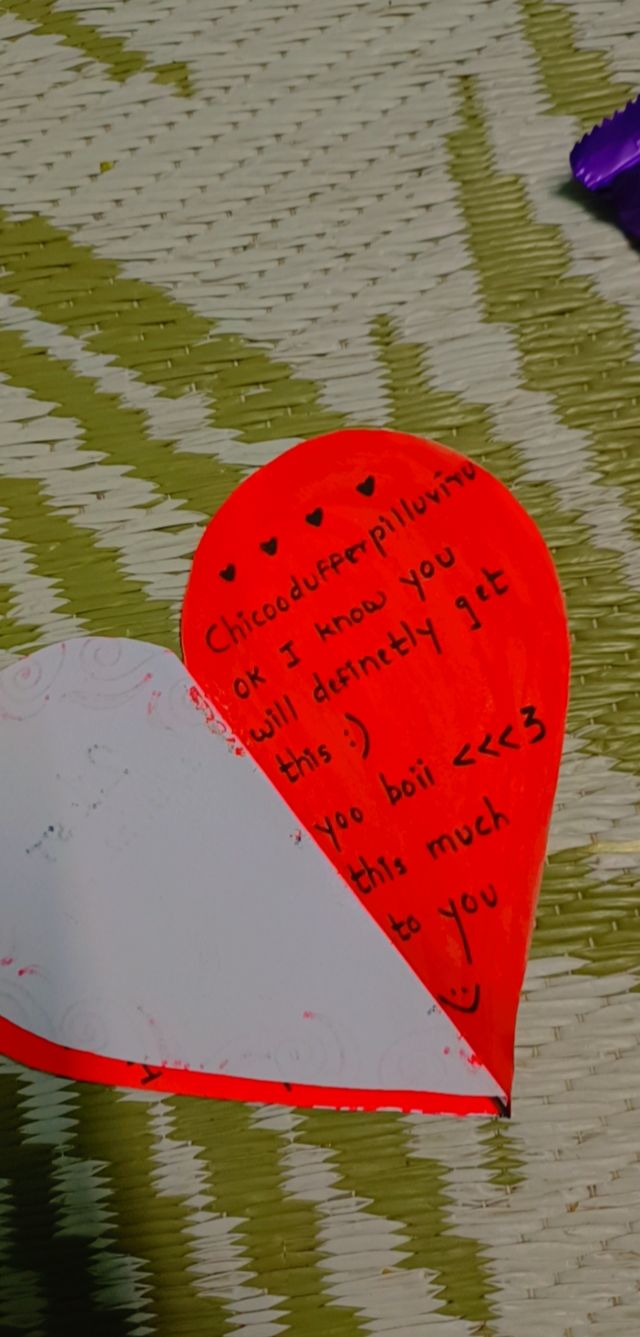 ♥ ♥ ♥ ♥
Chicoodufferpilluviru
ok I know you
will definetly get
this :)
yoo boii <<<3
this much
to you
:)